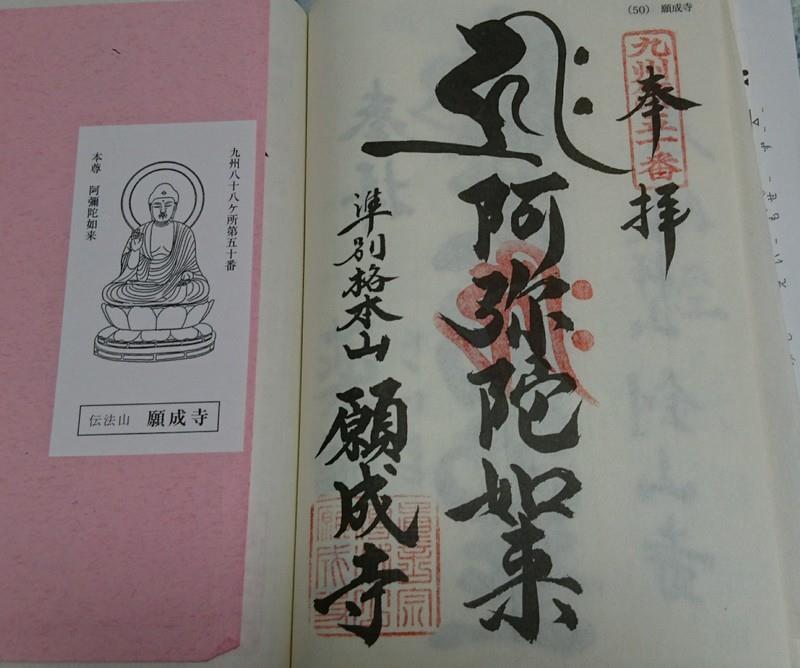 (50) 願成寺
奉拝
阿弥陀如来
準別格本山 願成寺
九州八十八ヶ所第五十番
本尊 阿彌陀如来
伝法山 願成寺